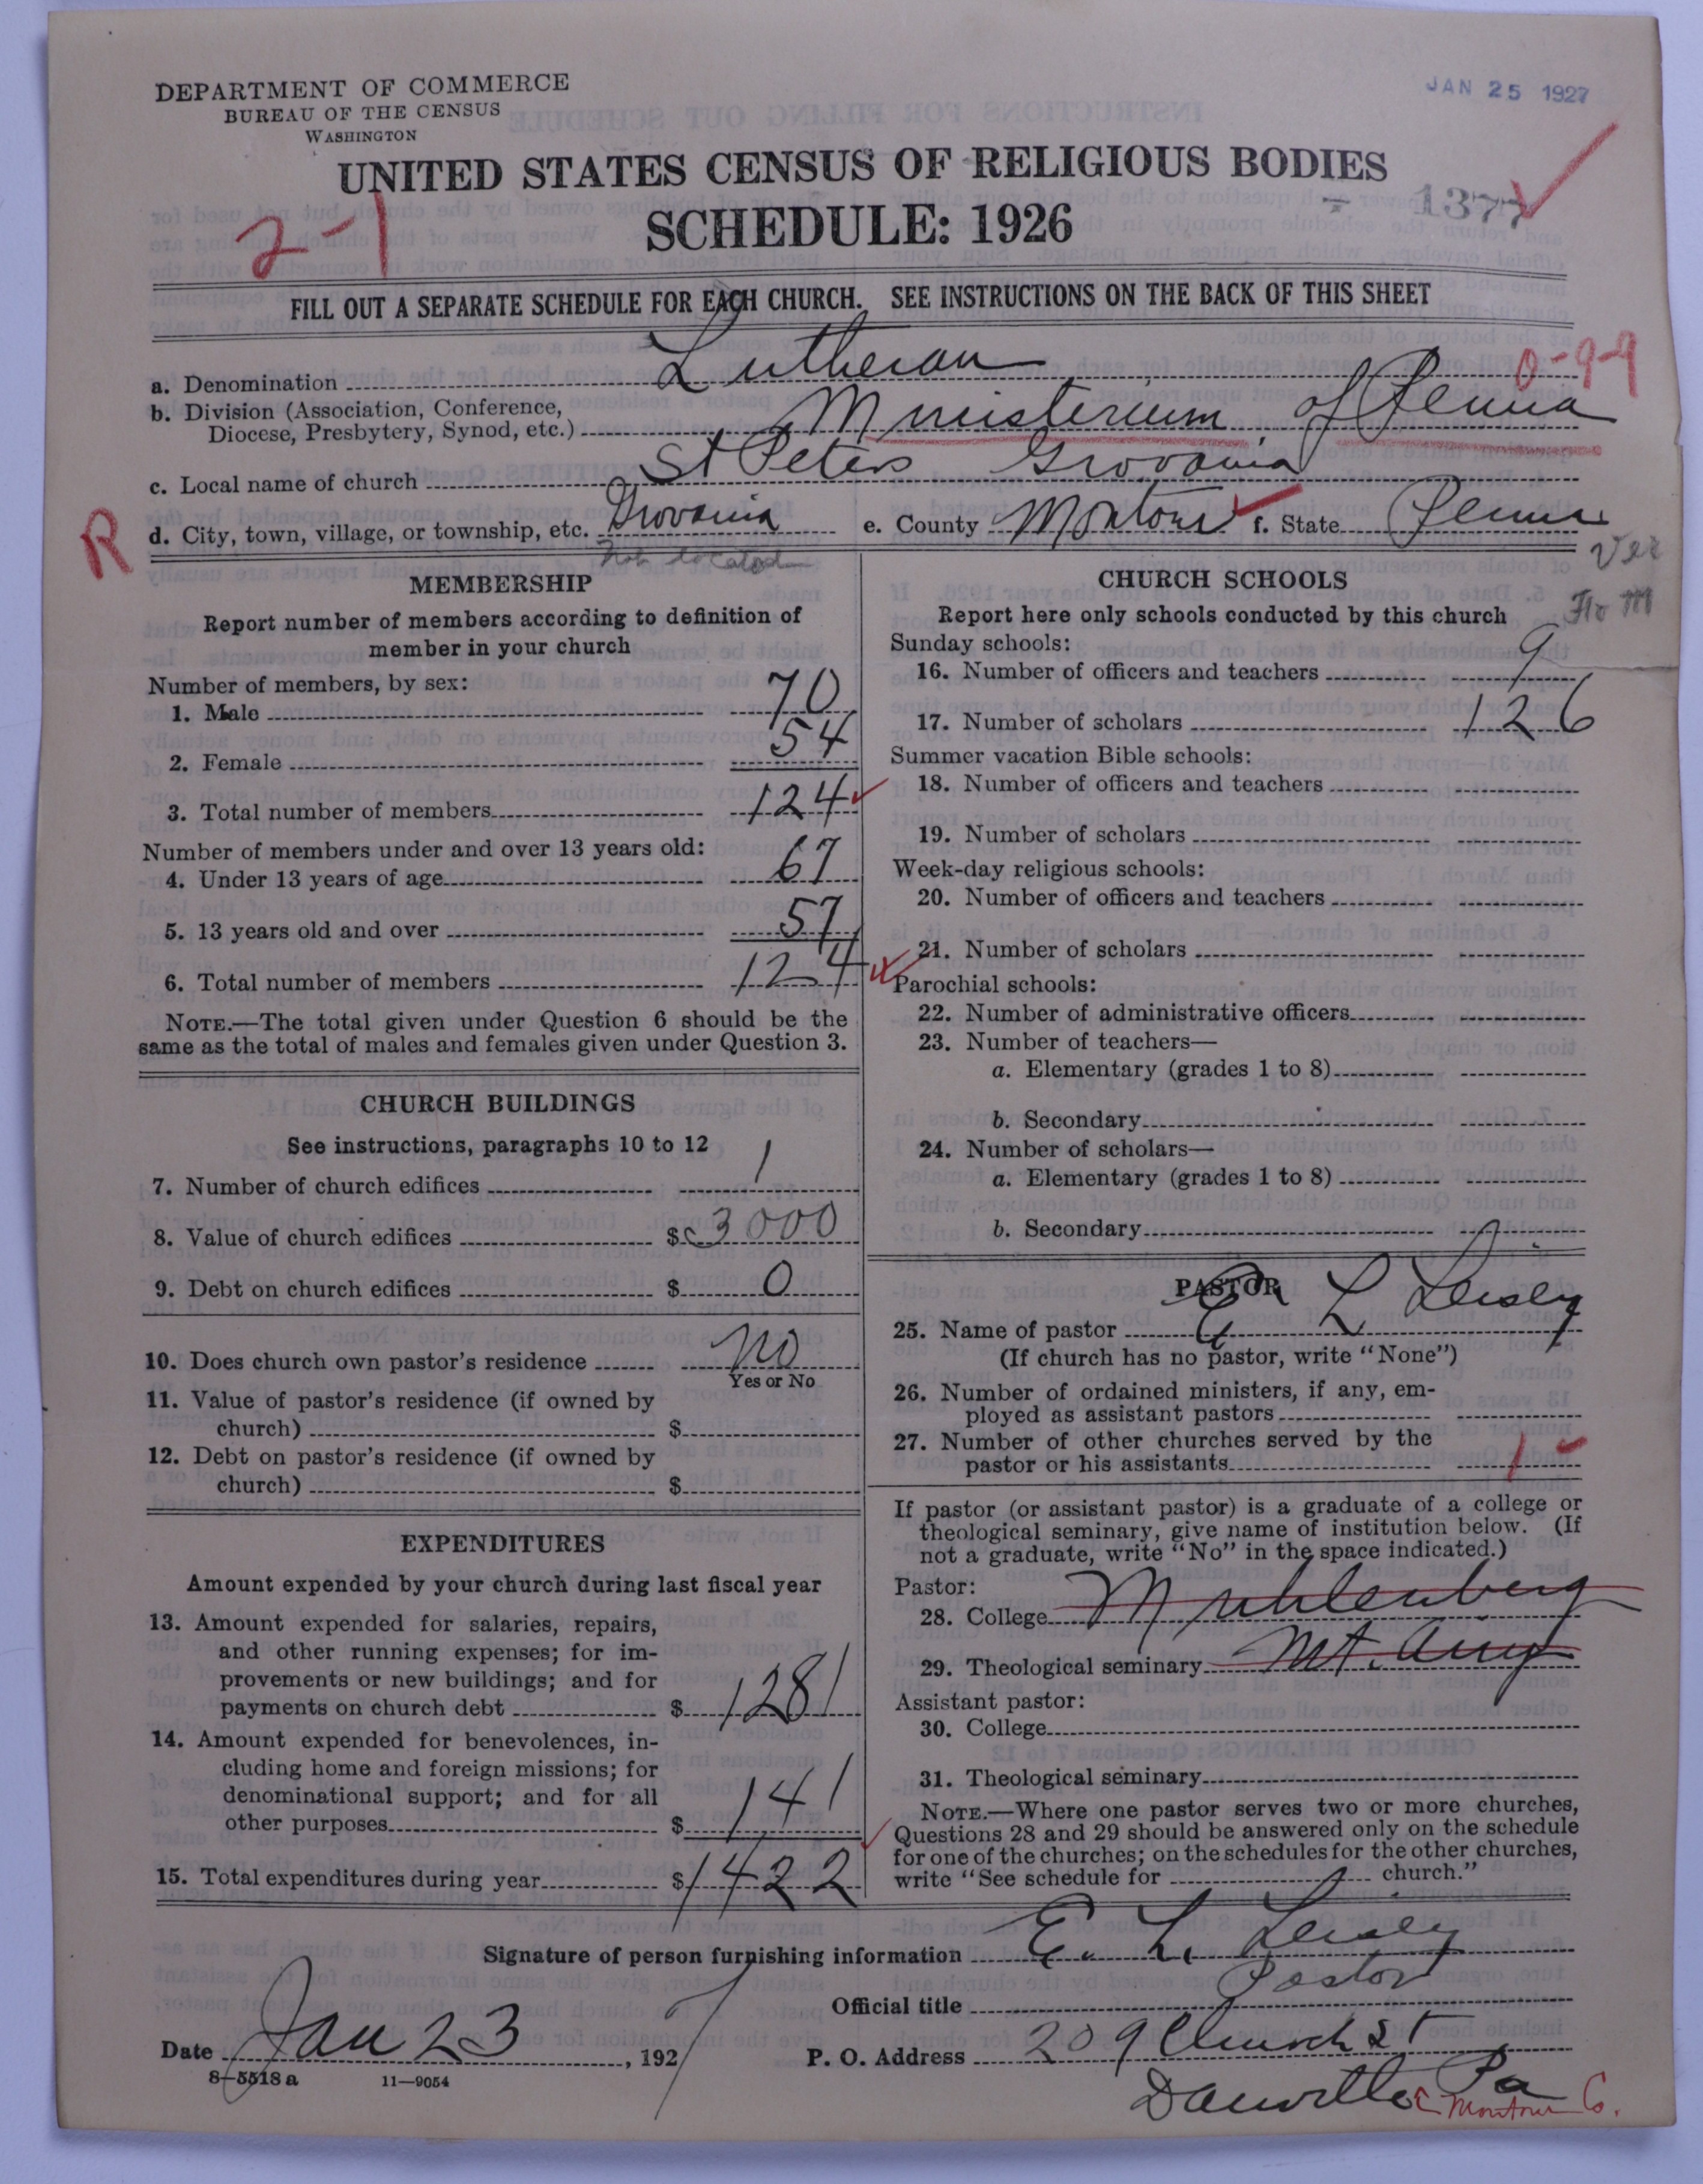 DEPARTMENT OF COMMERCE
BUREAU OF THE CENSUS
WASHINGTON
JAN 25 1927
UNITED STATES CENSUS OF RELIGIOUS BODIES
SCHEDULE: 1926
2-1
1377
FILL OUT A SEPARATE SCHEDULE FOR EACH CHURCH. SEE INSTRUCTIONS ON THE BACK OF THIS SHEET
a. Denomination Lutheran 0-9-9
b. Division (Association, Conference,
Diocese, Presbytery, Synod, etc.) Ministerium of Penna
c. Local name of church St Peters Grovania
R
d. City, town, village, or township, etc. Grovania e. County Montour f. State Penna
Not located
Ver
Flo M
MEMBERSHIP
Report number of members according to definition of
member in your church
Number of members, by sex:
1. Male 70
2. Female 54
3. Total number of members 124
Number of members under and over 13 years old:
4. Under 13 years of age 67
5. 13 years old and over 57
6. Total number of members 124
NOTE.—The total given under Question 6 should be the
same as the total of males and females given under Question 3.
CHURCH BUILDINGS
See instructions, paragraphs 10 to 12
7. Number of church edifices 1
8. Value of church edifices $ 3000
9. Debt on church edifices $ 0
10. Does church own pastor's residence No
Yes or No
11. Value of pastor's residence (if owned by
church) $
12. Debt on pastor's residence (if owned by
church) $
EXPENDITURES
Amount expended by your church during last fiscal year
13. Amount expended for salaries, repairs,
and other running expenses; for im-
provements or new buildings; and for
payments on church debt $ 1281
14. Amount expended for benevolences, in-
cluding home and foreign missions; for
denominational support; and for all
other purposes $ 141
15. Total expenditures during year $ 1422
CHURCH SCHOOLS
Report here only schools conducted by this church
Sunday schools:
16. Number of officers and teachers 9
17. Number of scholars 126
Summer vacation Bible schools:
18. Number of officers and teachers
19. Number of scholars
Week-day religious schools:
20. Number of officers and teachers
21. Number of scholars
Parochial schools:
22. Number of administrative officers
23. Number of teachers—
a. Elementary (grades 1 to 8)
b. Secondary
24. Number of scholars—
a. Elementary (grades 1 to 8)
b. Secondary
PASTOR
25. Name of pastor E L Leisey
(If church has no pastor, write "None")
26. Number of ordained ministers, if any, em-
ployed as assistant pastors
27. Number of other churches served by the
pastor or his assistants 1
If pastor (or assistant pastor) is a graduate of a college or
theological seminary, give name of institution below. (If
not a graduate, write "No" in the space indicated.)
Pastor:
28. College Muhlenberg
29. Theological seminary Mt. Airy
Assistant pastor:
30. College
31. Theological seminary
NOTE.—Where one pastor serves two or more churches,
Questions 28 and 29 should be answered only on the schedule
for one of the churches; on the schedules for the other churches,
write "See schedule for church."
Signature of person furnishing information E. L. Leisey
Official title Pastor
Date Jan 23, 1927
P. O. Address 209 Church St
8-5518 a 11-9054
Danville Pa
Montour Co.